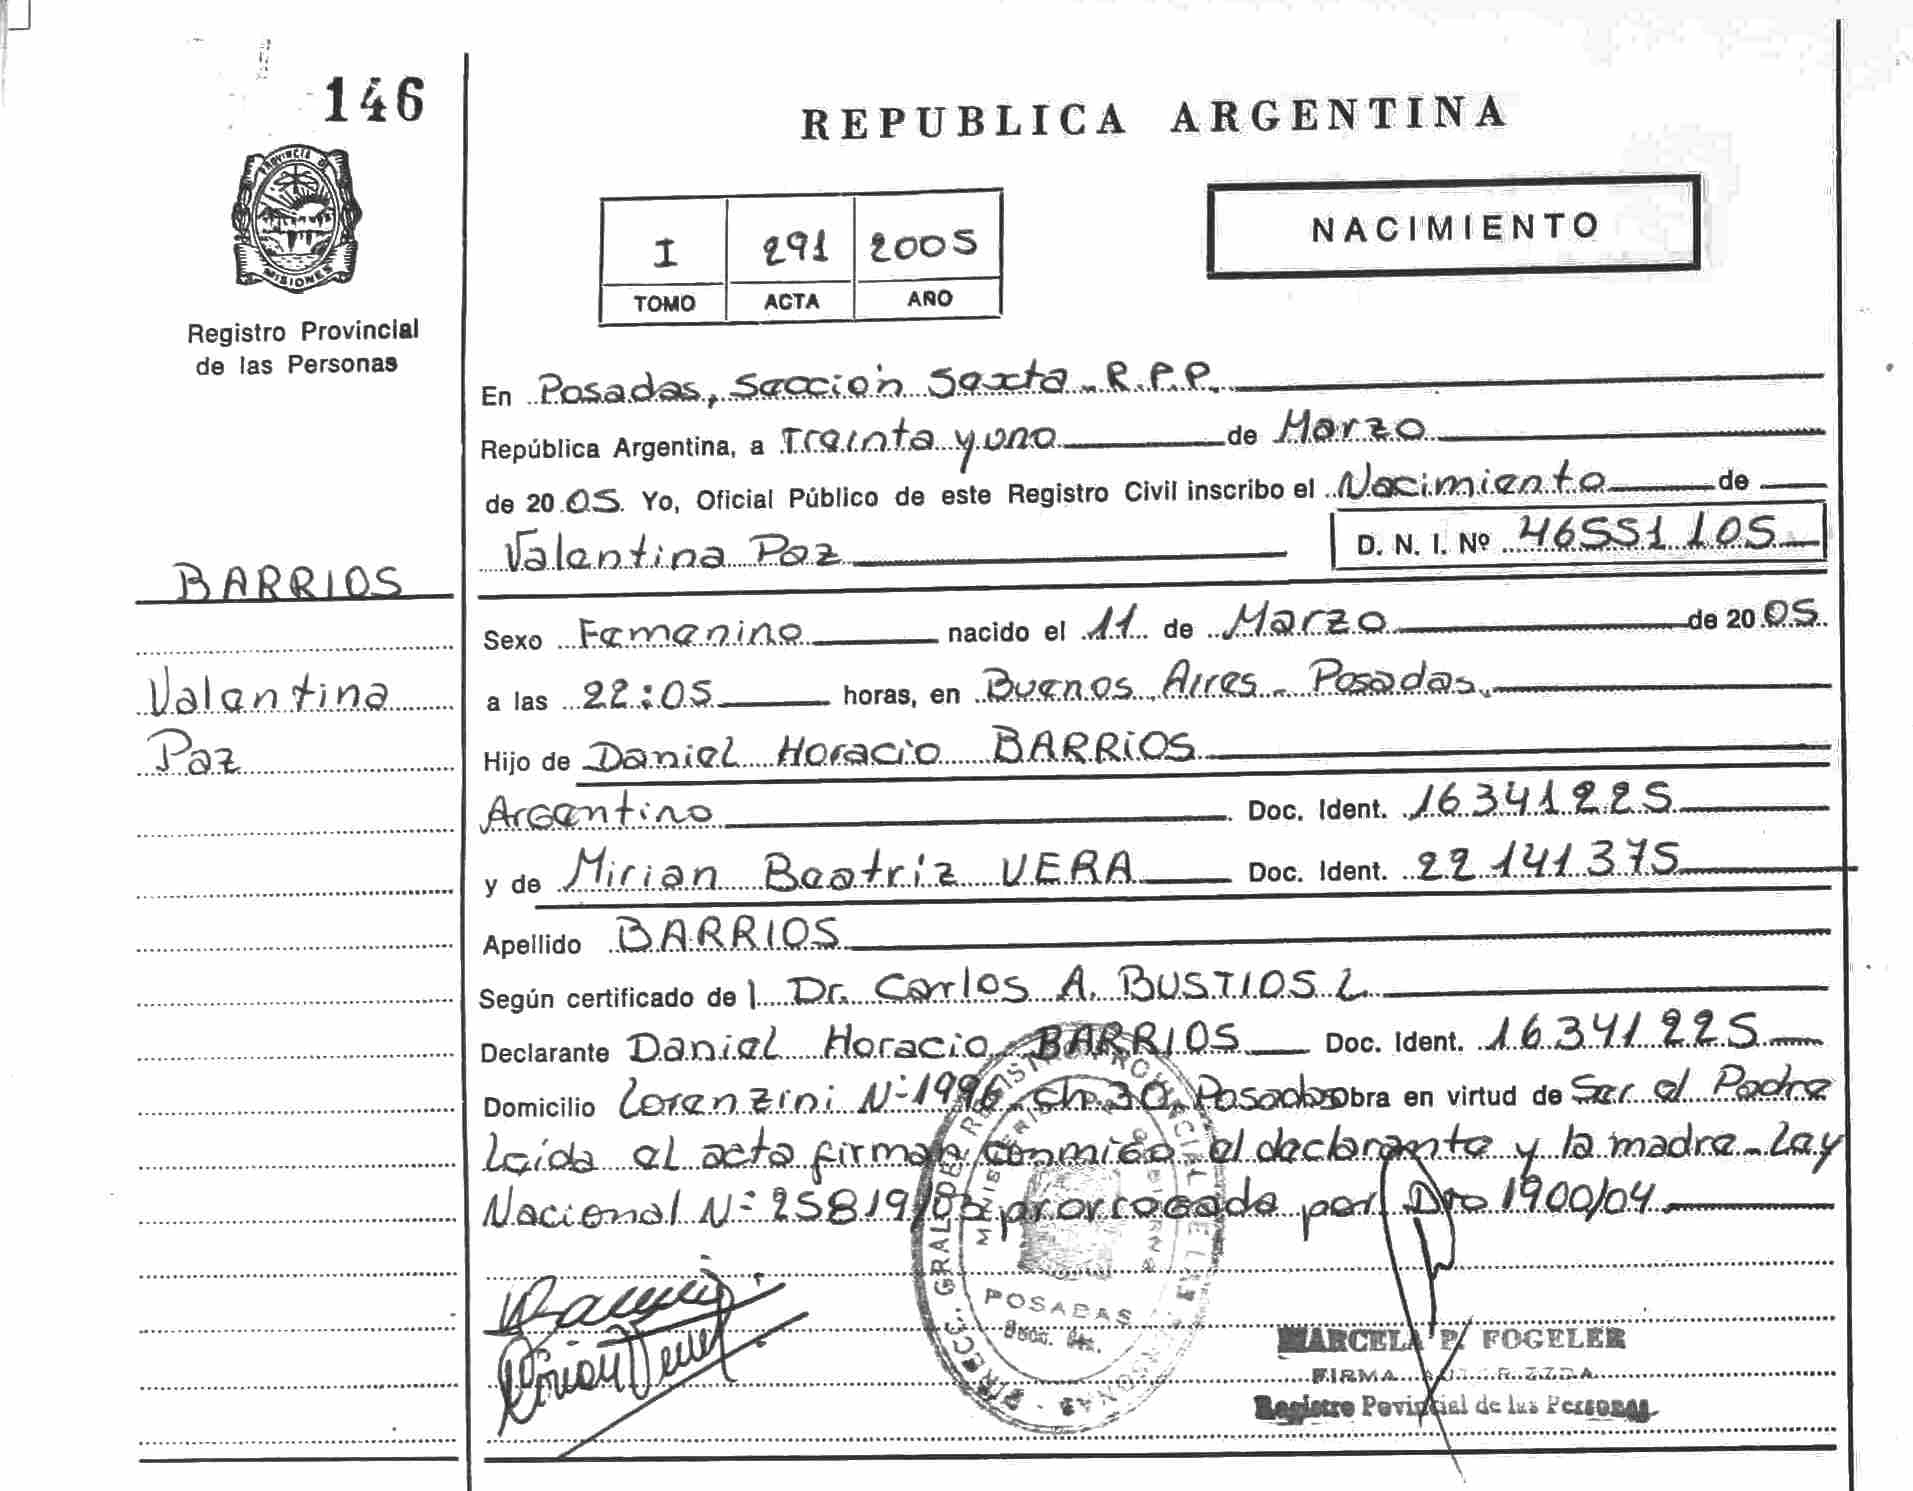 146
PROVINCIA DE
MISIONES
Registro Provincial
de las Personas
BARRIOS
Valentina
Paz
REPUBLICA ARGENTINA
I 291 2005
TOMO ACTA AÑO
NACIMIENTO
En Posadas, Sección Sexta R.P.P.
República Argentina, a Treinta y uno de Marzo
de 2005. Yo, Oficial Público de este Registro Civil inscribo el Nacimiento de
Valentina Paz D. N. I. Nº 46551105
Sexo Femenino nacido el 11 de Marzo de 2005
a las 22:05 horas, en Buenos Aires - Posadas.
Hijo de Daniel Horacio BARRIOS
Argentino Doc. Ident. 16341225
y de Mirian Beatriz VERA Doc. Ident. 22141375
Apellido BARRIOS
Según certificado de Dr. Carlos A. BUSTIOS L.
Declarante Daniel Horacio BARRIOS Doc. Ident. 16341225
Domicilio Lorenzini Nº 1996 Ch 30. Posadas Obra en virtud de Ser el Padre
Leída el acta firman conmigo el declarante y la madre - Ley
Nacional Nº 25819/03 prorrogada por Dto 1900/04.
POSADAS
MARCELA P. FOGELER
FIRMA
Registro Povincial de las Personas